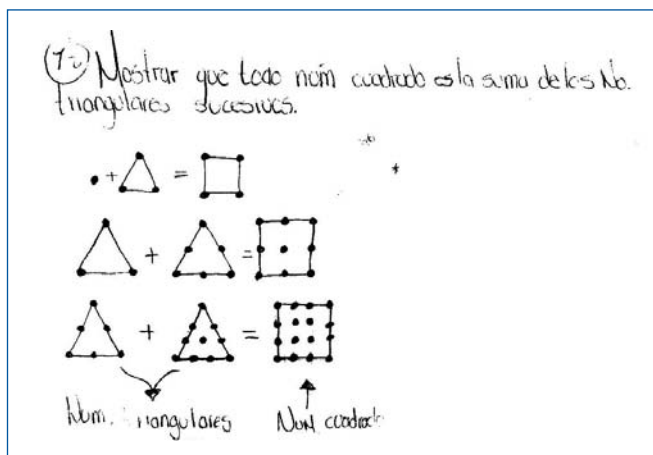 Mostrar que todo núm cuadrado es la suma de los No.
triangulares sucesivos.
+ =
+ =
+ =
Num. triangulares Num cuadrado